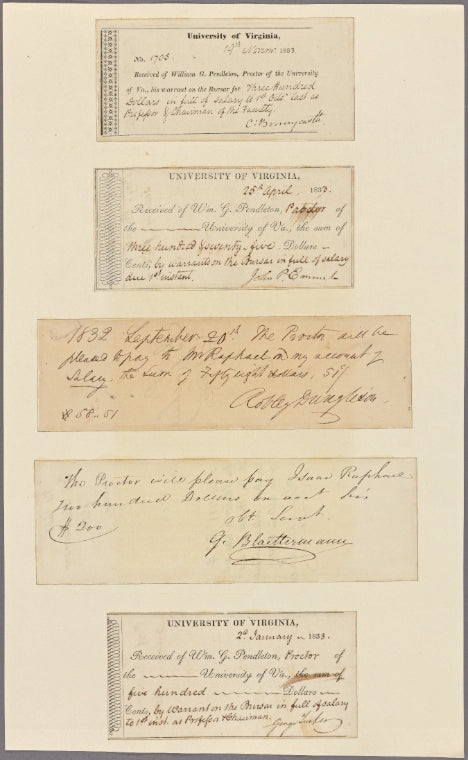 University of Virginia,
19th Novmr. 1833
No. 1703.
Received of William G. Pendleton, Proctor of the University
of Va., his warrant on the Bursar for Three Hundred
Dollars in full of Salary to 1st Octr. last as
Professor & Chairman of the Faculty.
C: Bonnycastle.
UNIVERSITY OF VIRGINIA,
25th April, 1833.
Received of Wm. G. Pendleton, Proctor of
the University of Va., the sum of
three hundred & seventy-five Dollars
Cents, by warrants on the Bursar in full of salary
due 1st instant.
John P. Emmet
1832 September 20th. The Proctor will be
pleased to pay to Mr Raphael on my account of
Salary, the Sum of Fifty eight dollars, 51/
$58-51
Robley Dunglison
The Proctor will please pay Isaac Raphael
two hundred Dollars on acct his
$200
obt. Servt.
G. Blaettermann
UNIVERSITY OF VIRGINIA,
2d January 1833.
Received of Wm. G. Pendleton, Proctor of
the University of Va., the sum of
five hundred Dollars
Cents, by Warrant on the Bursar in full of salary
to 1st inst. as Professor & Chairman.
George Tucker